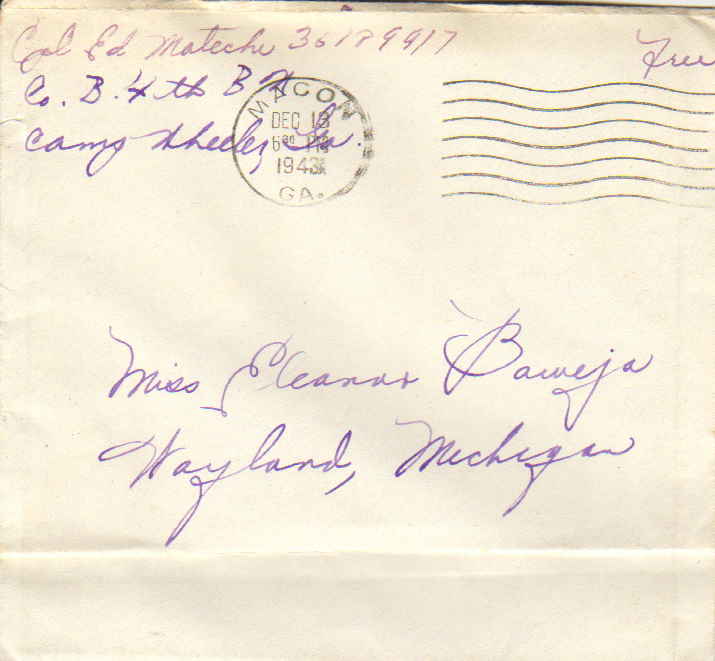 Cpl Ed Mateche 36189917
Free
Co. B. 4th Bn
Camp Wheeler Ga.
MACON
DEC 13
1943
GA.
Miss Eleanor Baweja
Wayland, Michigan